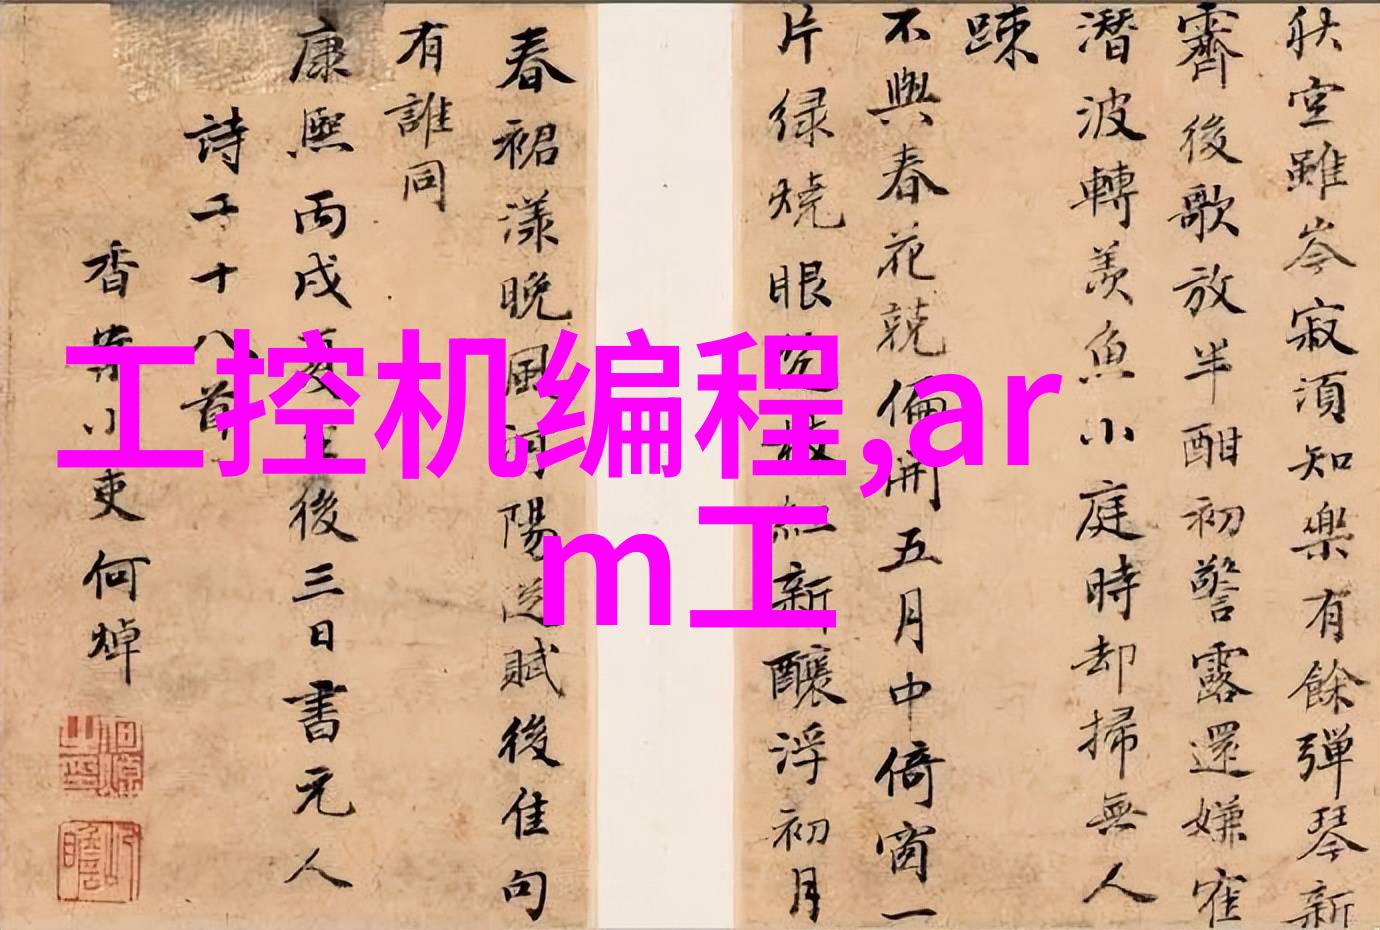 秋空雖岑寂須知樂有餘彈琴新
霽後歌放半酣初警露還嫌
潛波轉羨魚小庭時却掃無人
踈
不與春花競偏開五月中倚窗一
片緑燒眼
新釀浮初月
春裙漾晚風河陽
賦後佳句
有誰同
康熙丙戌夏至後三日書元人
詩二十八首
香案小吏何焯
工控机编程,ar
m工